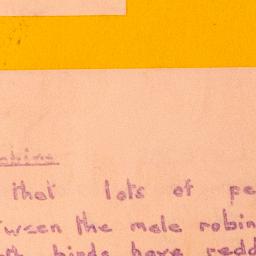 that lots of pe
tween the male robin
birds have redd